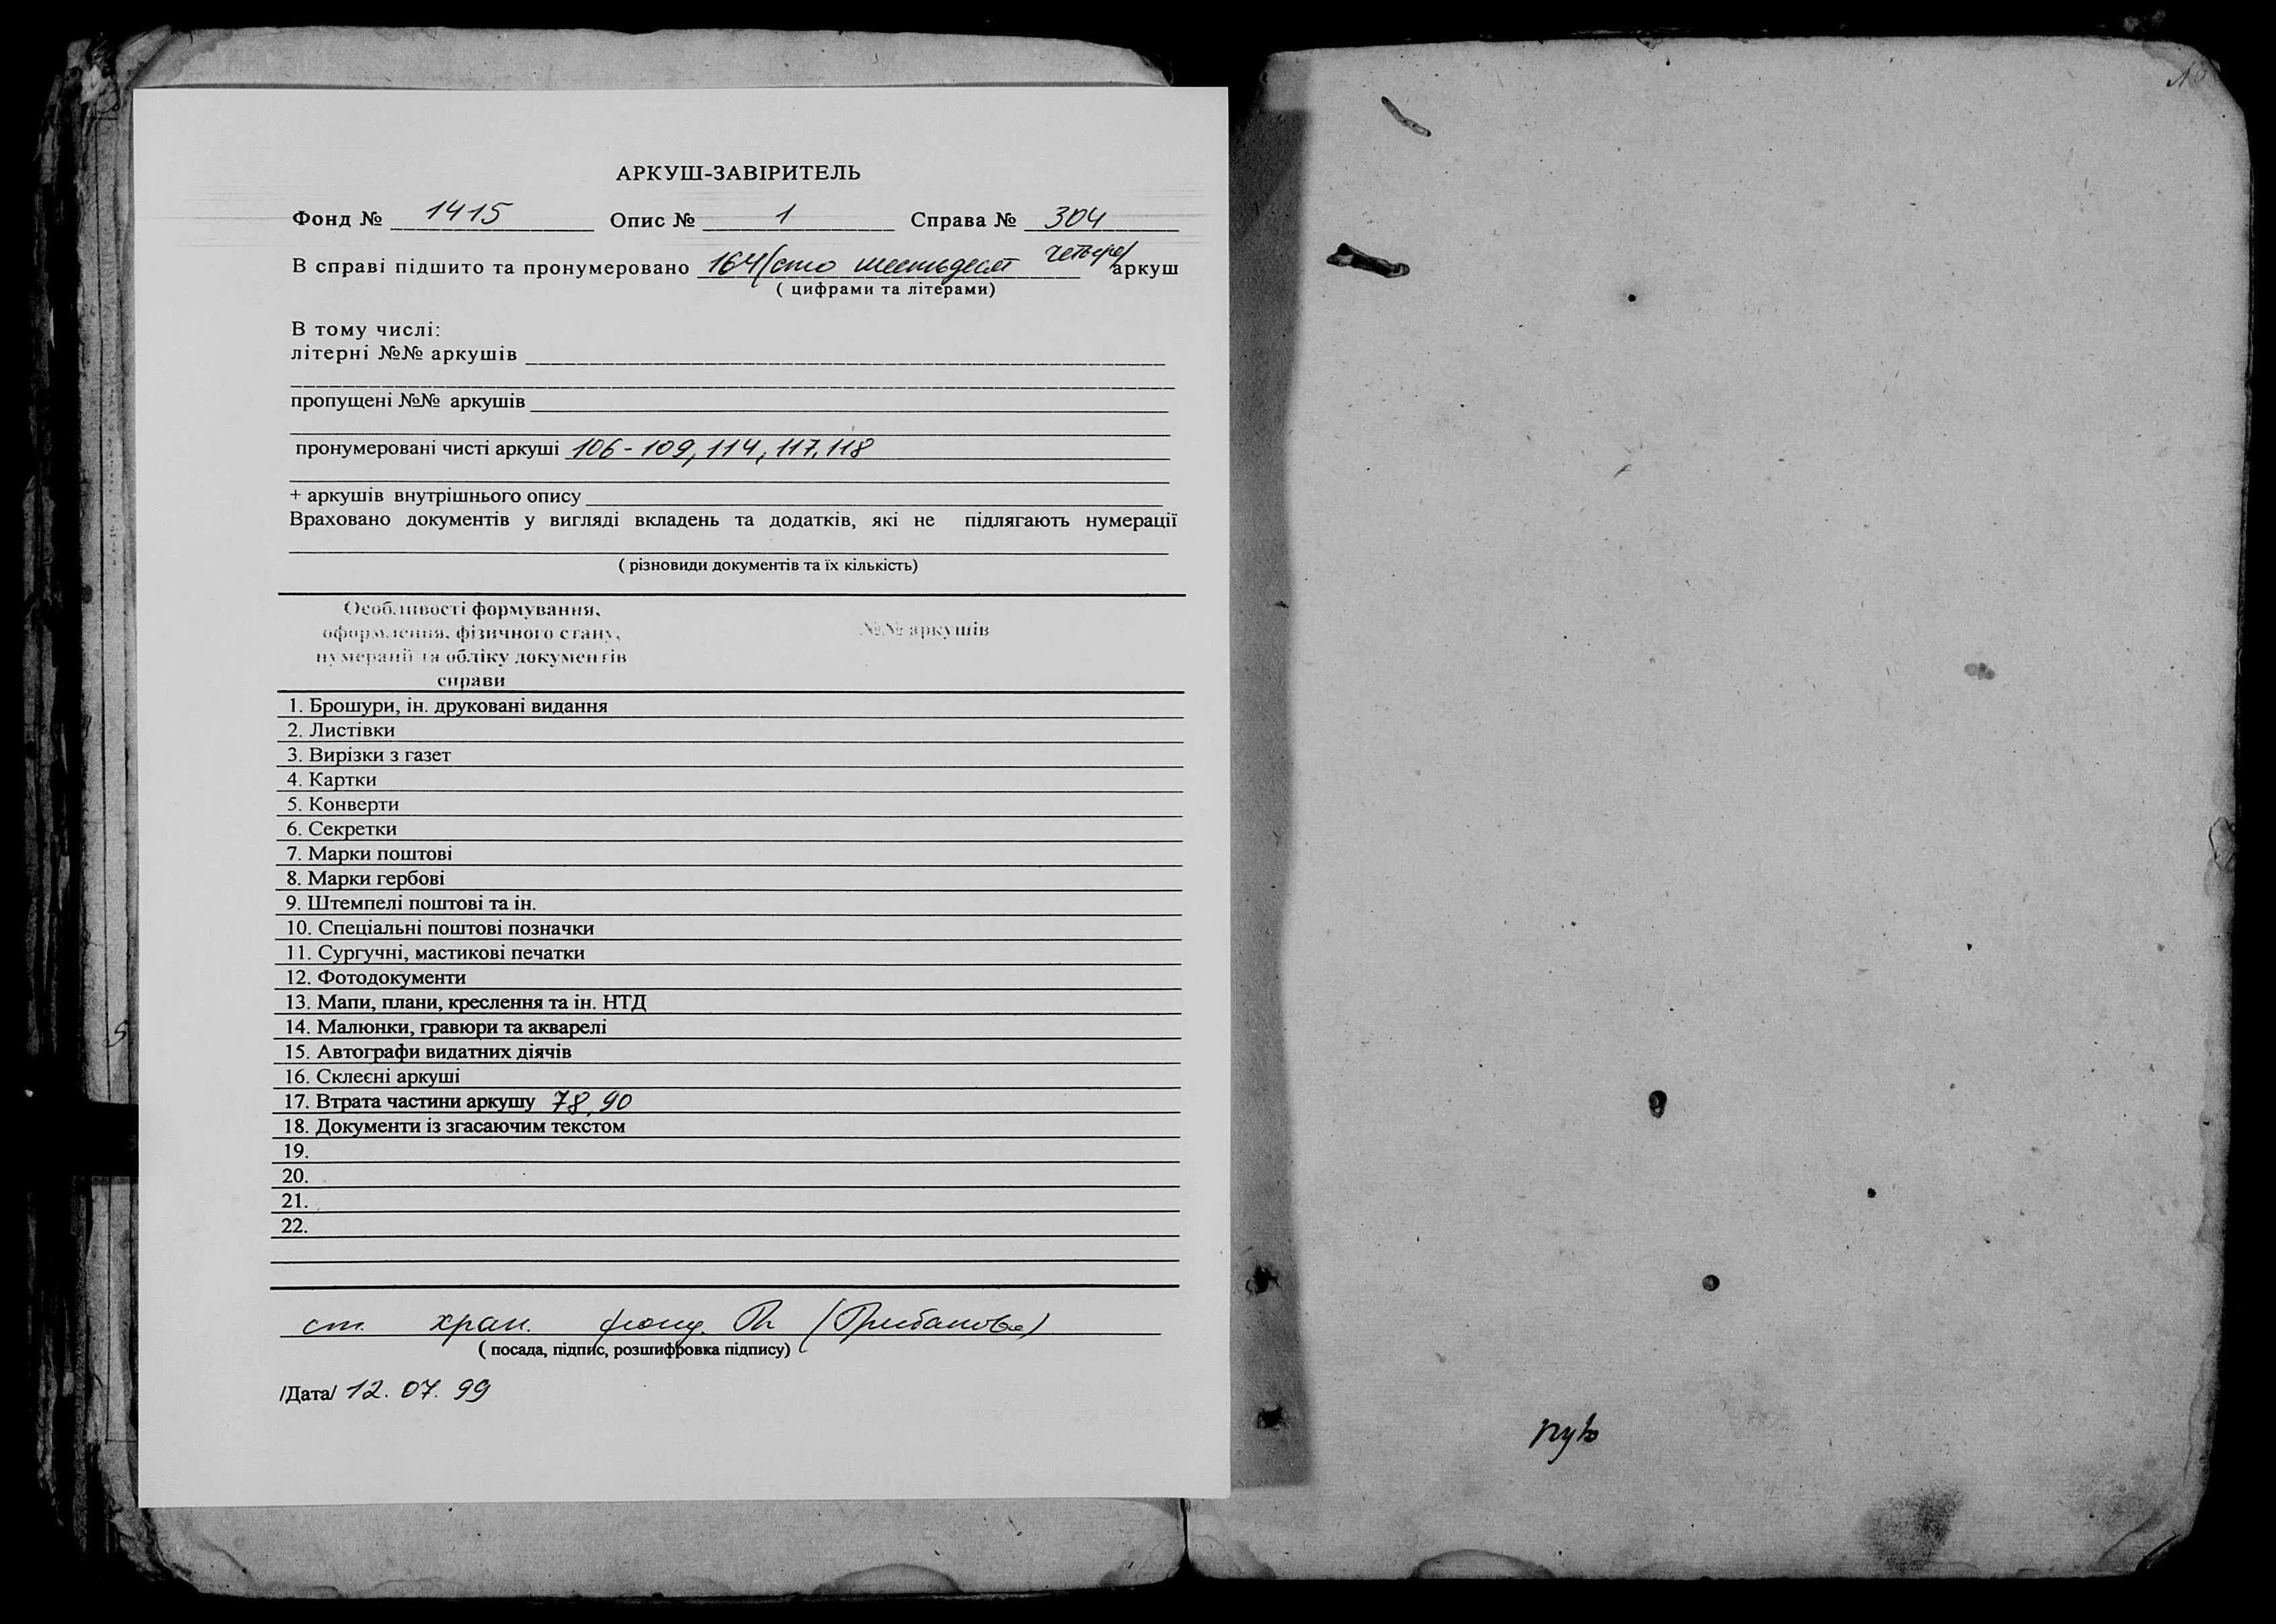 АРКУШ-ЗАВІРИТЕЛЬ
Фонд № 1415 Опис № 1 Справа № 304
В справі підшито та пронумеровано 164 (сто шестьдесят четыре) аркуш
( цифрами та літерами)
В тому числі:
літерні №№ аркушів
пропущені №№ аркушів
пронумеровані чисті аркуші 106-109, 114, 117, 118
+ аркушів внутрішнього опису
Враховано документів у вигляді вкладень та додатків, які не підлягають нумерації
( різновиди документів та їх кількість)
Особливості формування,
оформлення, фізичного стану, №№ аркушів
нумерації та обліку документів
справи
1. Брошури, ін. друковані видання
2. Листівки
3. Вирізки з газет
4. Картки
5. Конверти
6. Секретки
7. Марки поштові
8. Марки гербові
9. Штемпелі поштові та ін.
10. Спеціальні поштові позначки
11. Сургучні, мастикові печатки
12. Фотодокументи
13. Мапи, плани, креслення та ін. НТД
14. Малюнки, гравюри та акварелі
15. Автографи видатних діячів
16. Склеєні аркуші
17. Втрата частини аркушу 78, 90
18. Документи із згасаючим текстом
19.
20.
21.
22.
ст. хран. фонд.
( посада, підпис, розшифровка підпису)
/Дата/ 12. 07. 99